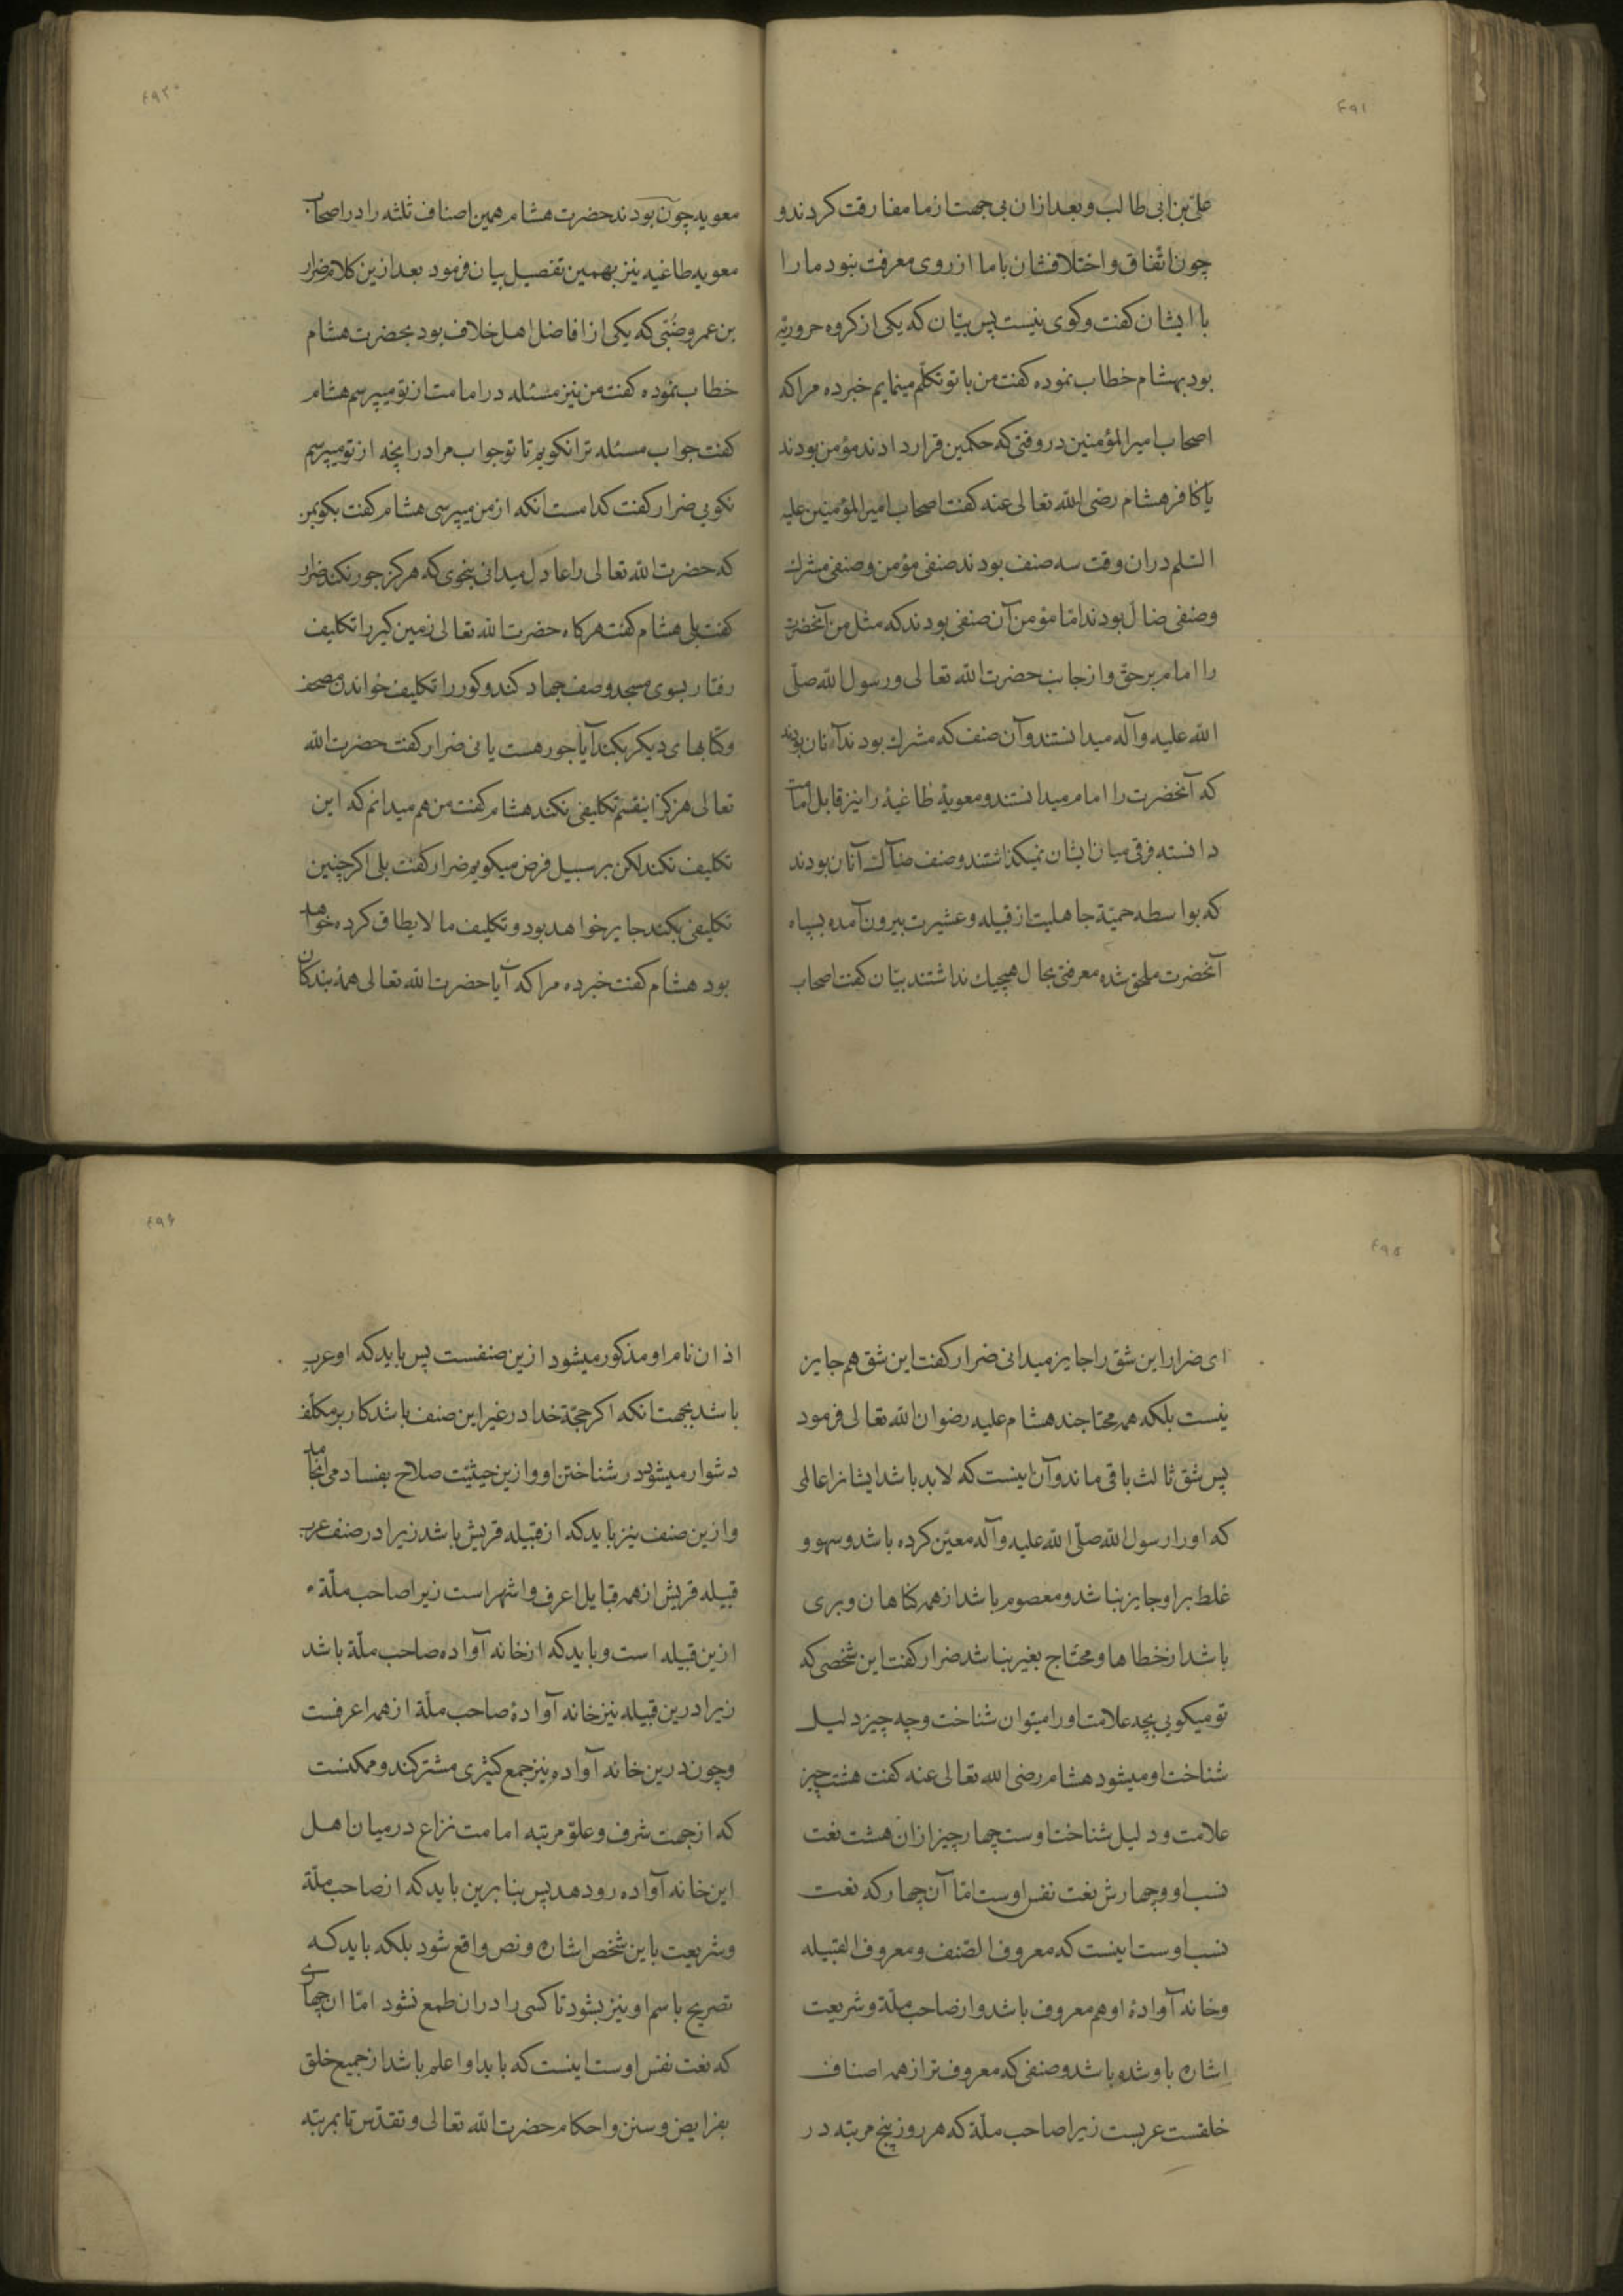 ۴۹۱
علی بن ابی طالب و بعد ازان بی جهت از ما مفارقت کردند و
چون اتفاق و اختلافشان با ما از روی معرفت نبود ما را
با ایشان کفت و کوی نیست پس بیان که یکی از کروه حروریّه
بود بهشام خطاب نموده کفت من با تو تکلّم مینمایم خبر ده مرا که
اصحاب امیر المؤمنین در وقتی که حکمین قرار دادند مؤمن بودند
یا کافر هشام رضی الله تعالی عنه کفت اصحاب امیر المؤمنین علیه
السّلم دران وقت سه صنف بودند صنفی مؤمن و صنفی مشرك
و صنفی ضالّ بودند امّا مؤمن آن صنفی بودند که مثل من آنحضرت
را امام بر حق و از جانب حضرت الله تعالی و رسول الله صلّی
الله علیه و آله میدانستند و آن صنف که مشرك بودند آنان بودند
که آنحضرت را امام میدانستند و معویهٔ طاغیهٔ را نیز قابل امامت
دانسته فرقی میان ایشان نمیکذاشتند و صنف ضالّ آنان بودند
که بواسطه حمیّة جاهلیت از قبیله و عشیرت بیرون آمده بسپاه
آنحضرت ملحق شده معرفتی بحال هیچیك نداشتند بیّان کفت اصحاب
۴۹۲
معویه چون بودند حضرت هشام همین اصناف ثلثه را در اصحاب
معویه طاغیه نیز بهمین تفصیل بیان فرمود بعد ازین کلام ضرار
بن عمرو ضبّی که یکی از افاضل اهل خلاف بود بحضرت هشام
خطاب نموده کفت من نیز مسئله در امامت از تو میپرسم هشام
کفت جواب مسئله ترا نکویم تا تو جواب مرا در انچه از تو میپرسم
نکویی ضرار کفت کدامست انکه از من میپرسی هشام کفت بکو بمن
که حضرت الله تعالی را عادل میدانی بنحوی که هرکز جور نکند ضرار
کفت بلی هشام کفت هرکاه حضرت الله تعالی زمین کیر را تکلیف
رفتار بسوی مسجد و صف جهاد کند و کور را تکلیف خواندن مصحف
و کتابهای دیکر بکند آیا جور هست یا نی ضرار کفت حضرت الله
تعالی هرکز اینقسم تکلیفی نکند هشام کفت من هم میدانم که این
تکلیف نکند لکن بر سبیل فرض میکویم ضرار کفت بلی اکر چنین
تکلیفی بکند جایر خواهد بود و تکلیف ما لا یطاق کرده خواهد
بود هشام کفت خبر ده مرا که آیا حضرت الله تعالی همهٔ بندکان
۴۹۵
ای ضرار این شق را جایز میدانی ضرار کفت این شق هم جایز
نیست بلکه همه محتاجند هشام علیه رضوان الله تعالی فرمود
پس شق ثالث باقی ماند و آن اینست که لابد باشد ایشانرا عالمی
که او را رسول الله صلّی الله علیه و آله معیّن کرده باشد و سهو و
غلط بر او جایز نباشد و معصوم باشد از همه کناهان و بری
باشد از خطاها و محتاج بغیر نباشد ضرار کفت این شخصی که
تو میکویی بچه علامت او را میتوان شناخت و چه چیز دلیل
شناخت او میشود هشام رضی الله تعالی عنه کفت هشت چیز
علامت و دلیل شناخت اوست چهار چیز ازان هشت نعت
نسب او و چهارش نعت نفس اوست امّا آن چهار که نعت
نسب اوست اینست که معروف الصّنف و معروف القبیله
و خانه آوادهٔ او هم معروف باشد و از صاحب ملّة و شریعت
اشاره باو شده باشد و صنفی که معروف تر از همه اصناف
خلقست عربست زیرا صاحب ملّة که هر روز پنج مرتبه در
۴۹۶
اذان نام او مذکور میشود ازین صنفست پس باید که او عرب
باشد بجهت انکه اکر حجّة خدا در غیر این صنف باشد کار بر مکلّف
دشوار میشود در شناختن او و ازین حیثیّت صلاح بفساد می انجامد
و ازین صنف نیز باید که از قبیله قریش باشد زیرا در صنف عرب
قبیله قریش از همه قبایل اعرف و اشهر است زیرا صاحب ملّة
ازین قبیله است و باید که از خانه آواده صاحب ملّة باشد
زیرا درین قبیله نیز خانه آوادهٔ صاحب ملّة از همه اعرفست
و چون درین خانه آواده نیز جمع کثیری مشترکند و ممکنست
که از جهت شرف و علوّ مرتبه امامت نزاع درمیان اهل
این خانه آواده رو دهد پس بنابرین باید که از صاحب ملّة
و شریعت باین شخص اشاره و نص واقع شود بلکه باید که
تصریح باسم او نیز بشود تا کسی را دران طمع نشود امّا ان چهاری
که نعت نفس اوست اینست که باید او اعلم باشد از جمیع خلق
بفرایض و سنن و احکام حضرت الله تعالی و تقدّس تا بمرتبه